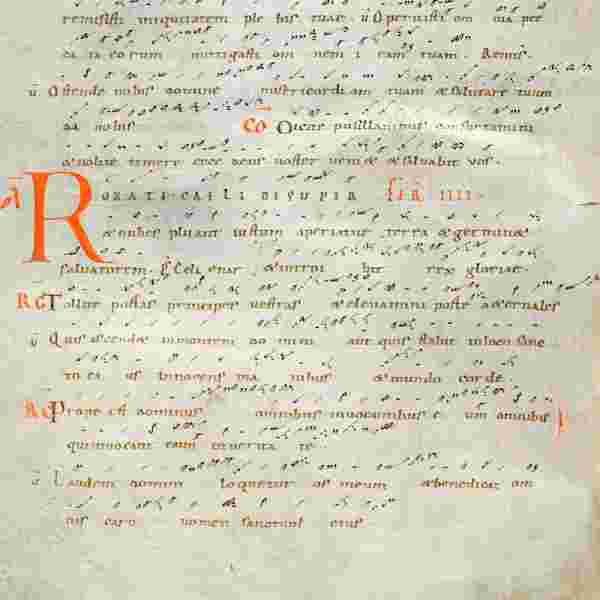 remisisti iniquitatem ple bis tuae. V Operuisti om nia pec
ca ta eorum mitigasti om nem i ram tuam. Remis.
V Ostende nobis domine misericordiam tuam & salutare tuum
da nobis CO Dicite pusillanimis confortamini
& nolite timere ecce deus noster veni& & saluabit vos.
RORATE CAELI DESUPER FER IIII
& nubes pluant iustum aperiatur terra & germin&
saluatorem. Ps Celi enar & interni bit rex gloriae.
RG Tollite portas principes vestras & eleuamini portae aeternales
V Quis ascend& in montem do mini aut quis stabit in loco sanc
to eius Innocens ma nibus & mundo corde.
RG Prope est dominus omnibus inuocantibus e um omnibus
qui inuocant eum in uerita te
V Laudem domini loquetur os meum & benedicat om
nis caro nomen sanctum eius